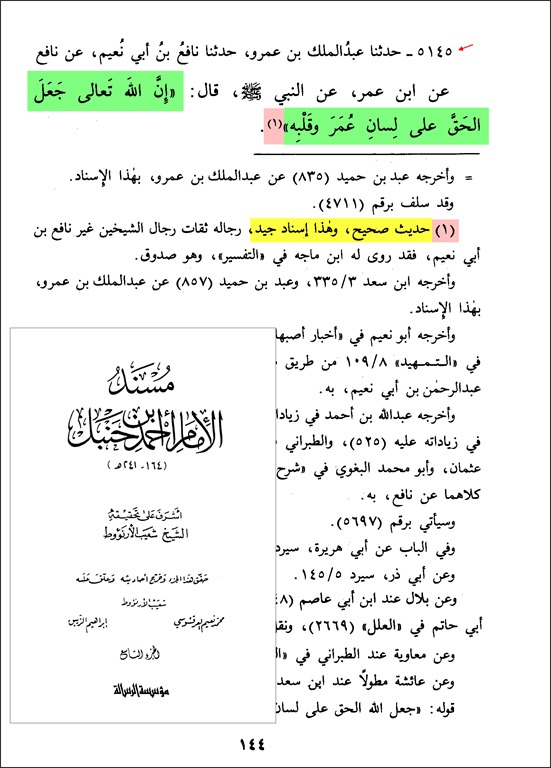 ٥١٤٥ ـ حدثنا عبدُالملك بن عمرو، حدثنا نافعُ بنُ أبي نُعيم، عن نافع
عن ابن عمر، عن النبي ﷺ، قال: «إِنَّ اللهَ تَعالى جَعَلَ
الحَقَّ على لِسانِ عُمَرَ وقَلْبِه»(١).
= وأخرجه عبد بن حميد (٨٣٥) عن عبدالملك بن عمرو، بهٰذا الإسناد.
وقد سلف برقم (٤٧١١).
(١) حديث صحيح، وهٰذا إسناد جيد، رجاله ثقات رجال الشيخين غير نافع بن
أبي نعيم، فقد روى له ابن ماجه في «التفسير»، وهو صدوق.
وأخرجه ابن سعد ٣٣٥/٣، وعبد بن حميد (٨٥٧) عن عبدالملك بن عمرو،
بهٰذا الإسناد.
وأخرجه أبو نعيم في «أخبار أصبها
في «التمهيد» ١٠٩/٨ من طريق
عبدالرحمٰن بن أبي نعيم، به.
وأخرجه عبدالله بن أحمد في زيادا
في زياداته عليه (٥٢٥)، والطبراني
عثمان، وأبو محمد البغوي في «شرح
كلاهما عن نافع، به.
وسيأتي برقم (٥٦٩٧).
وفي الباب عن أبي هريرة، سيرد
وعن أبي ذر، سيرد ١٤٥/٥.
وعن بلال عند ابن أبي عاصم (٤٨
أبي حاتم في «العلل» (٢٦٦٩)، ونق
وعن معاوية عند الطبراني في «ال
وعن عائشة مطولًا عند ابن سعد
قوله: «جعل الله الحق على لسان
مُسْنَدُ
الإمَام أحْمَد بْن حَنْبَل
(١٦٤ - ٢٤١ هـ)
أشرف على تحقيقه
الشيخ شعيب الأرنؤوط
حقق هذا الجزء وخرج أحاديثه وعلق عليه
شعيب الأرنؤوط
محمد نعيم العرقسوسي
إبراهيم الزيبق
الجزء التاسع
مؤسسة الرسالة
١٤٤